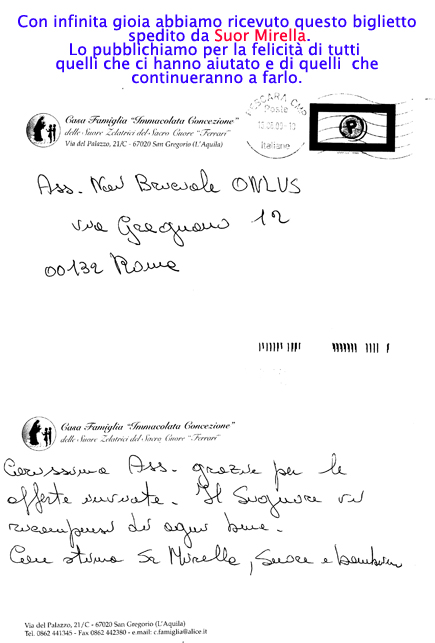 Con infinita gioia abbiamo ricevuto questo biglietto
spedito da Suor Mirella.
Lo pubblichiamo per la felicità di tutti
quelli che ci hanno aiutato e di quelli che
continueranno a farlo.
PESCARA CMP
Poste
Italiane
P
Casa Famiglia "Immacolata Concezione"
delle Suore Zelatrici del Sacro Cuore "Ferrari"
Via del Palazzo, 21/C - 67020 San Gregorio (L'Aquila)
Ass. New Benevale ONLUS
via Gragnano 12
00132 Roma
Casa Famiglia "Immacolata Concezione"
delle Suore Zelatrici del Sacro Cuore "Ferrari"
Carissima Ass. grazie per le
offerte inviate. Il Signore vi
ricompensi di ogni bene.
Con stima Sr Mirella, Suore e bambini
Via del Palazzo, 21/C - 67020 San Gregorio (L'Aquila)
Tel. 0862 441345 - Fax 0862 442380 - e.mail: c.famiglia@alice.it